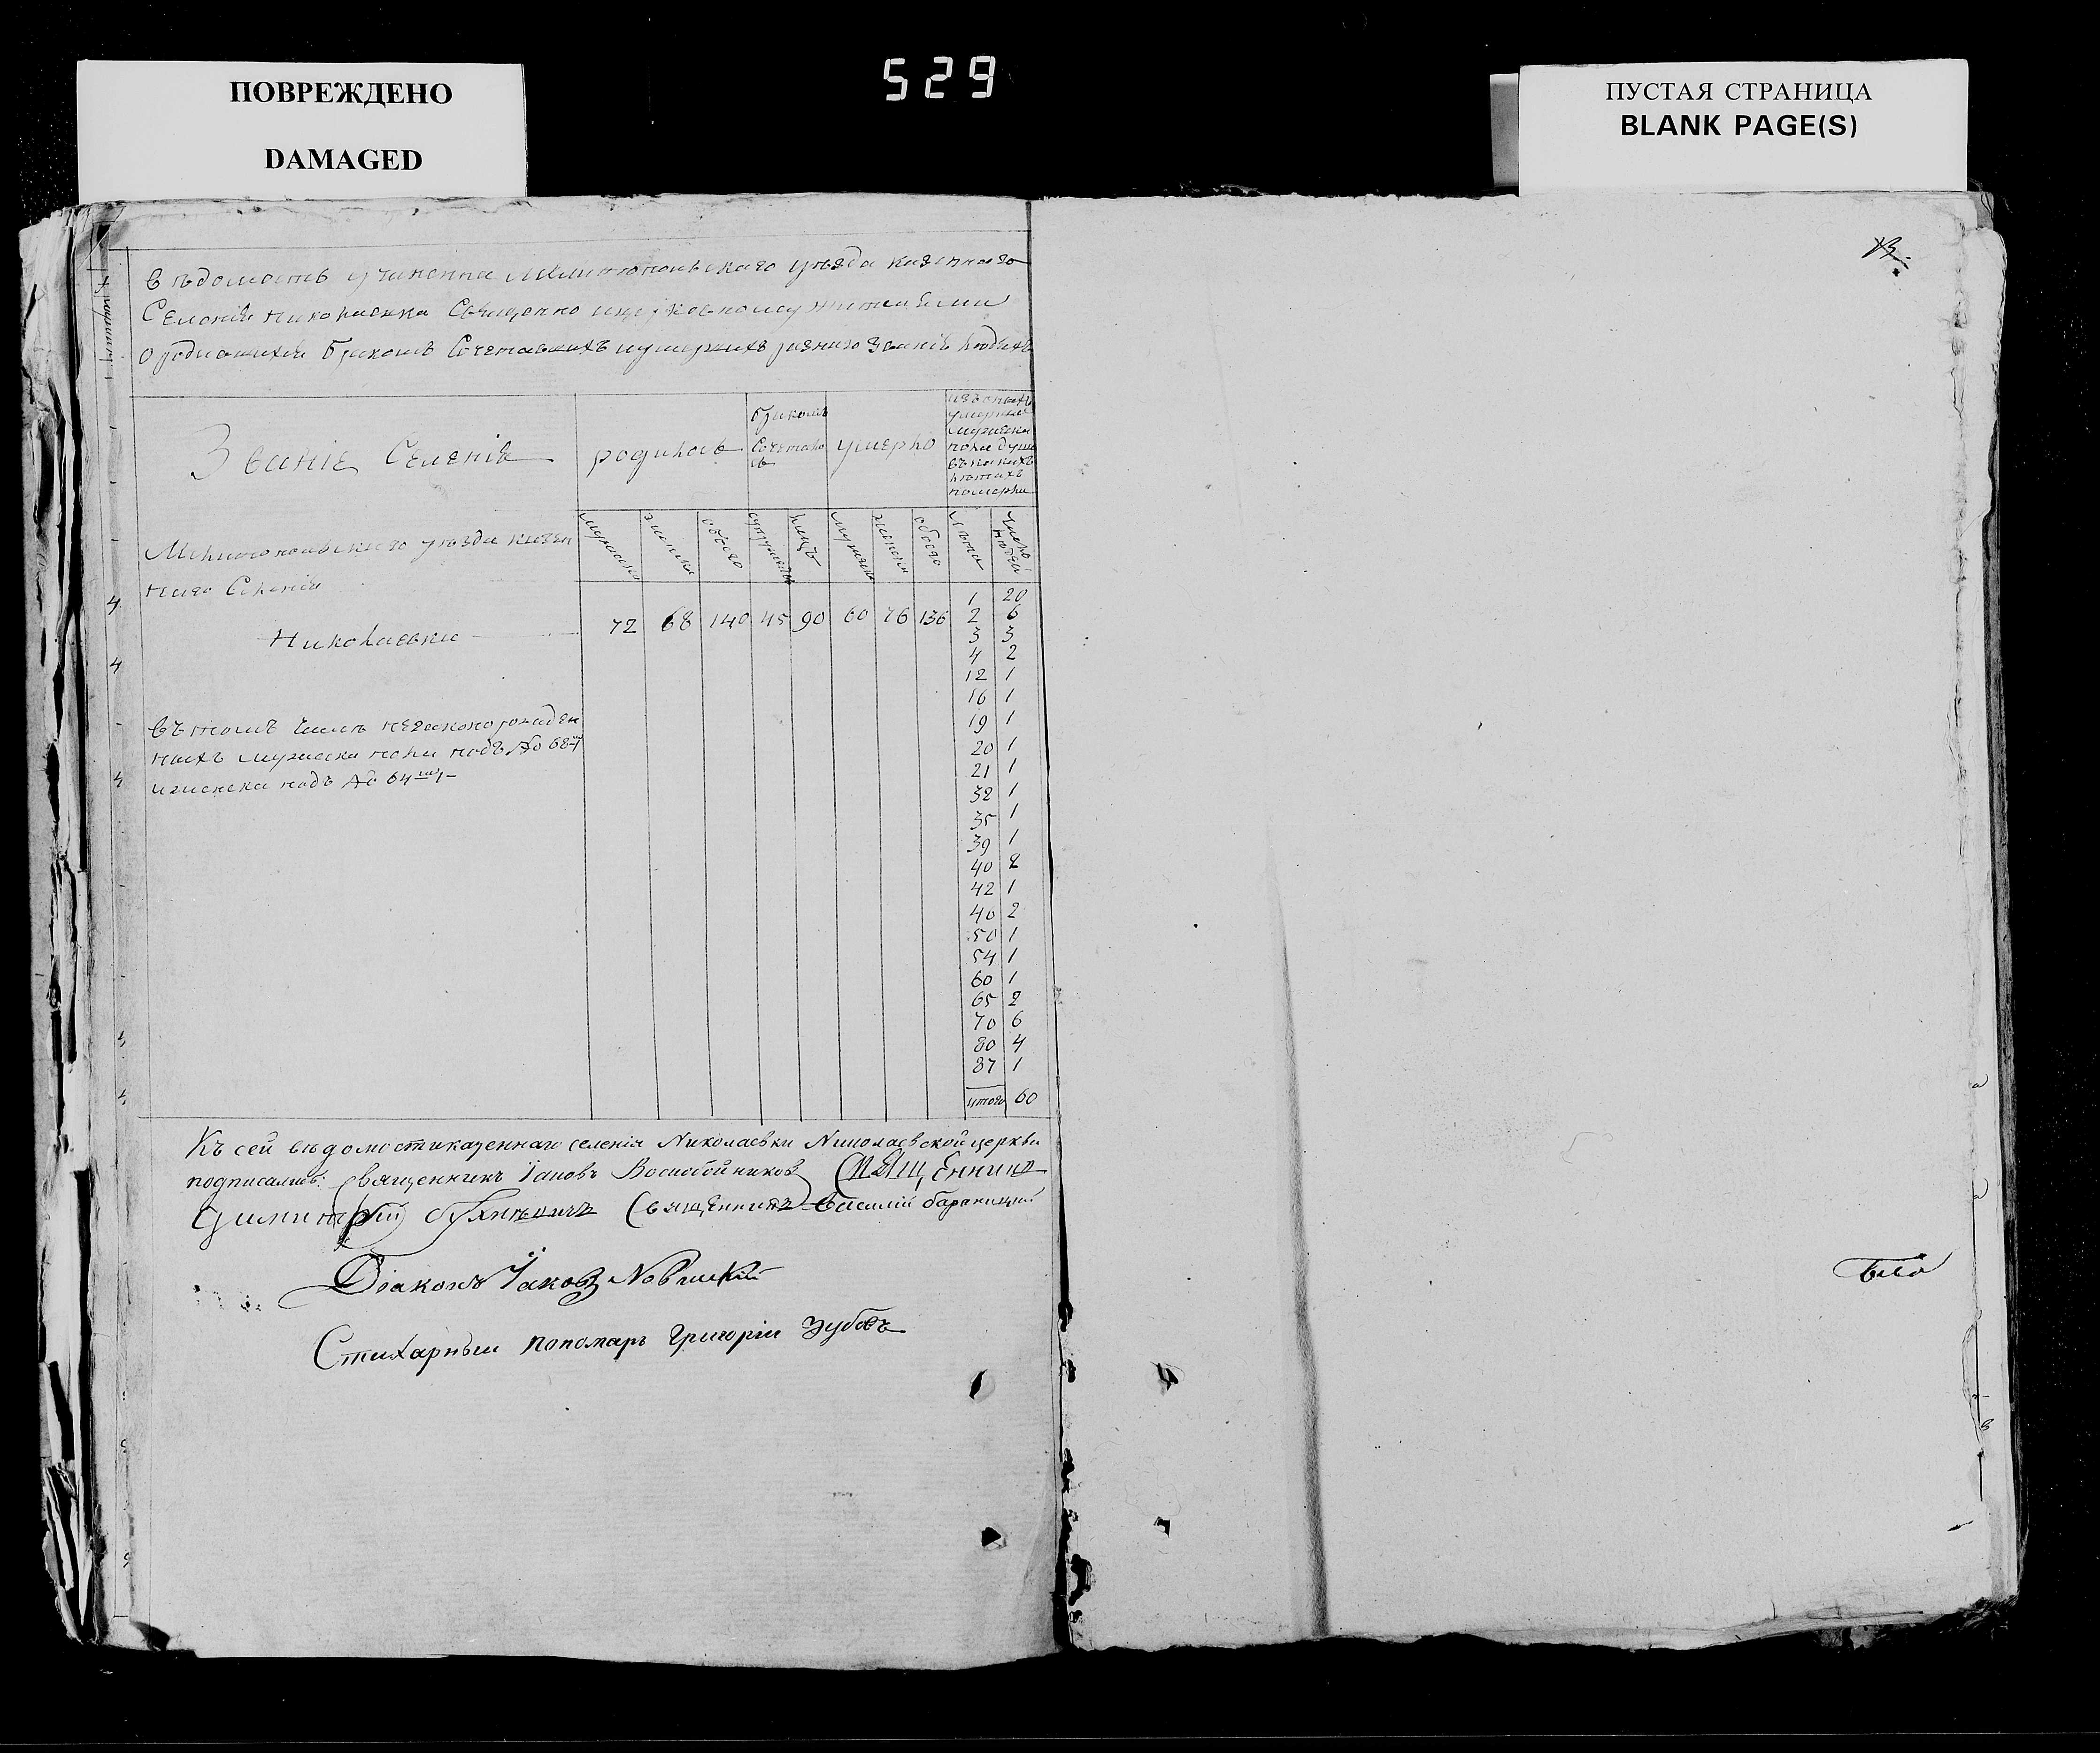 529
ПОВРЕЖДЕНО
DAMAGED
ПУСТАЯ СТРАНИЦА
BLANK PAGE(S)
Вѣдомость учинена Мелитопольскаго уѣзда казеннаго
Селенія Николаевки Священно
о родившихся бракомъ Сочетавшихъ и умершихъ разнаго званія людяхъ
Званіе Селенія
родилось
бракомъ
Сочетало
сь
умерло
изъ онихъ
умерши
мужеска
пола душъ
въ какихъ
лѣтахъ
померли
мужеска
женска
обоего
супружествъ
лицъ
мужеска
женска
обоего
лѣта
число людей
Мелитопольскаго уѣзда казен
наго Селенія
Николаевки
72 68 140 45 90 60 76 136
1 20
2 6
3 3
4 2
12 1
16 1
19 1
20 1
21 1
32 1
35 1
39 1
40 2
42 1
40 2
50 1
54 1
60 1
65 2
70 6
80 4
87 1
итого 60
Въ томъ числѣ незаконорожден
нихъ мужеска пола подъ № 68
и женска подъ № 64
Къ сей вѣдомости казеннаго селенія Николаевки Николаевской церкви
подписались: Священникъ Іаковъ Воскобойниковъ Священникъ
Димитрій Священникъ Василій Бараницкій
Діаконъ Іаковъ Новицкій
Стихарный пономарь Григорій Зубовъ